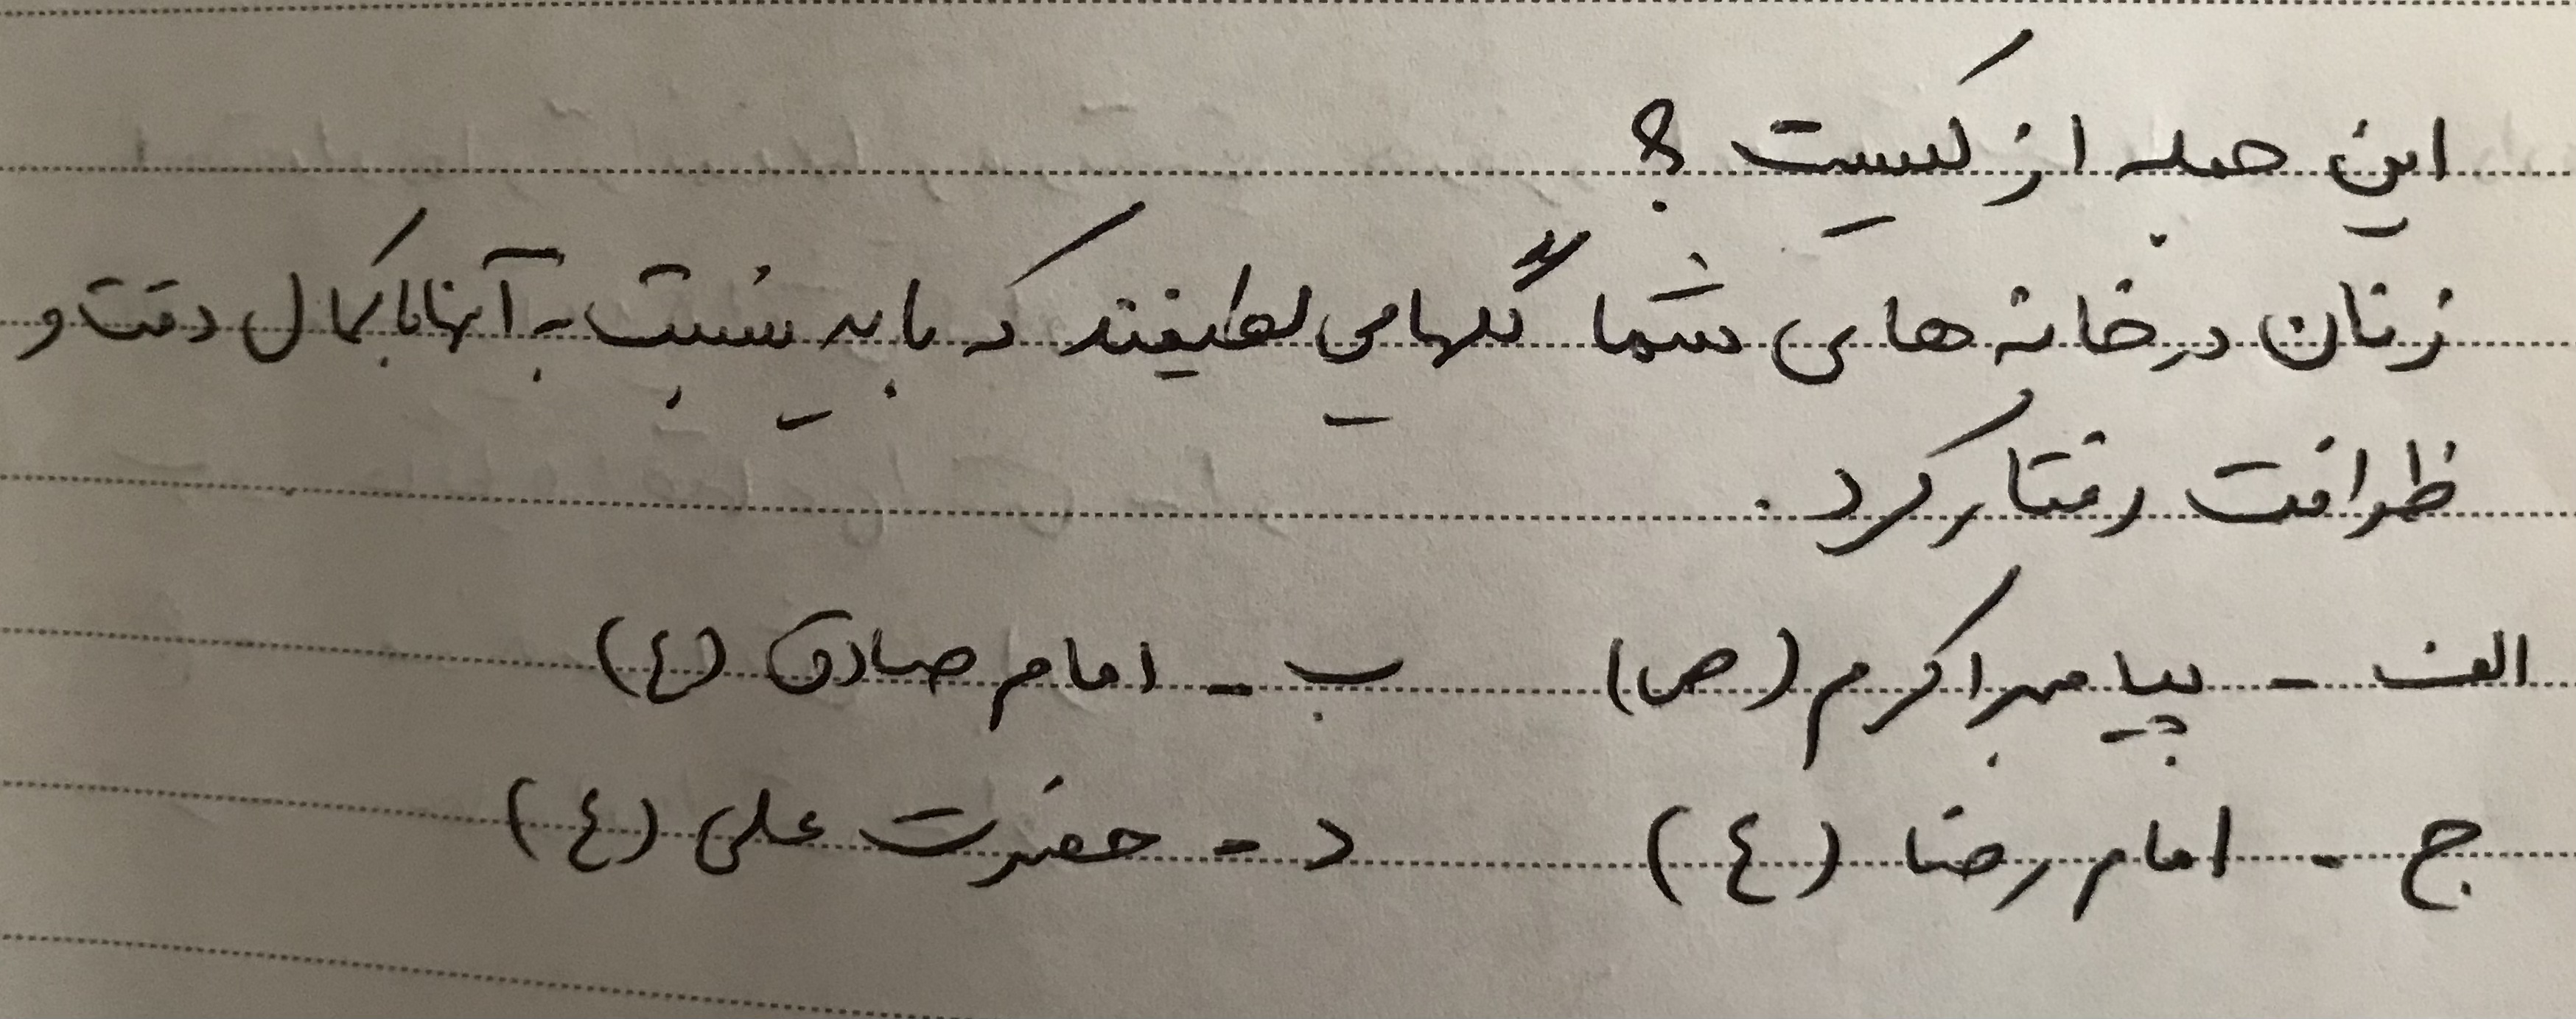 این جمله از کیست ؟
زنان در خانه های شما گلهایی لطیفند که باید نسبت به آنها با کمال دقت و
ظرافت رفتار کرد .
الف - پیامبر اکرم (ص) ب - امام صادق (ع)
ج - امام رضا (ع) د - حضرت علی (ع)